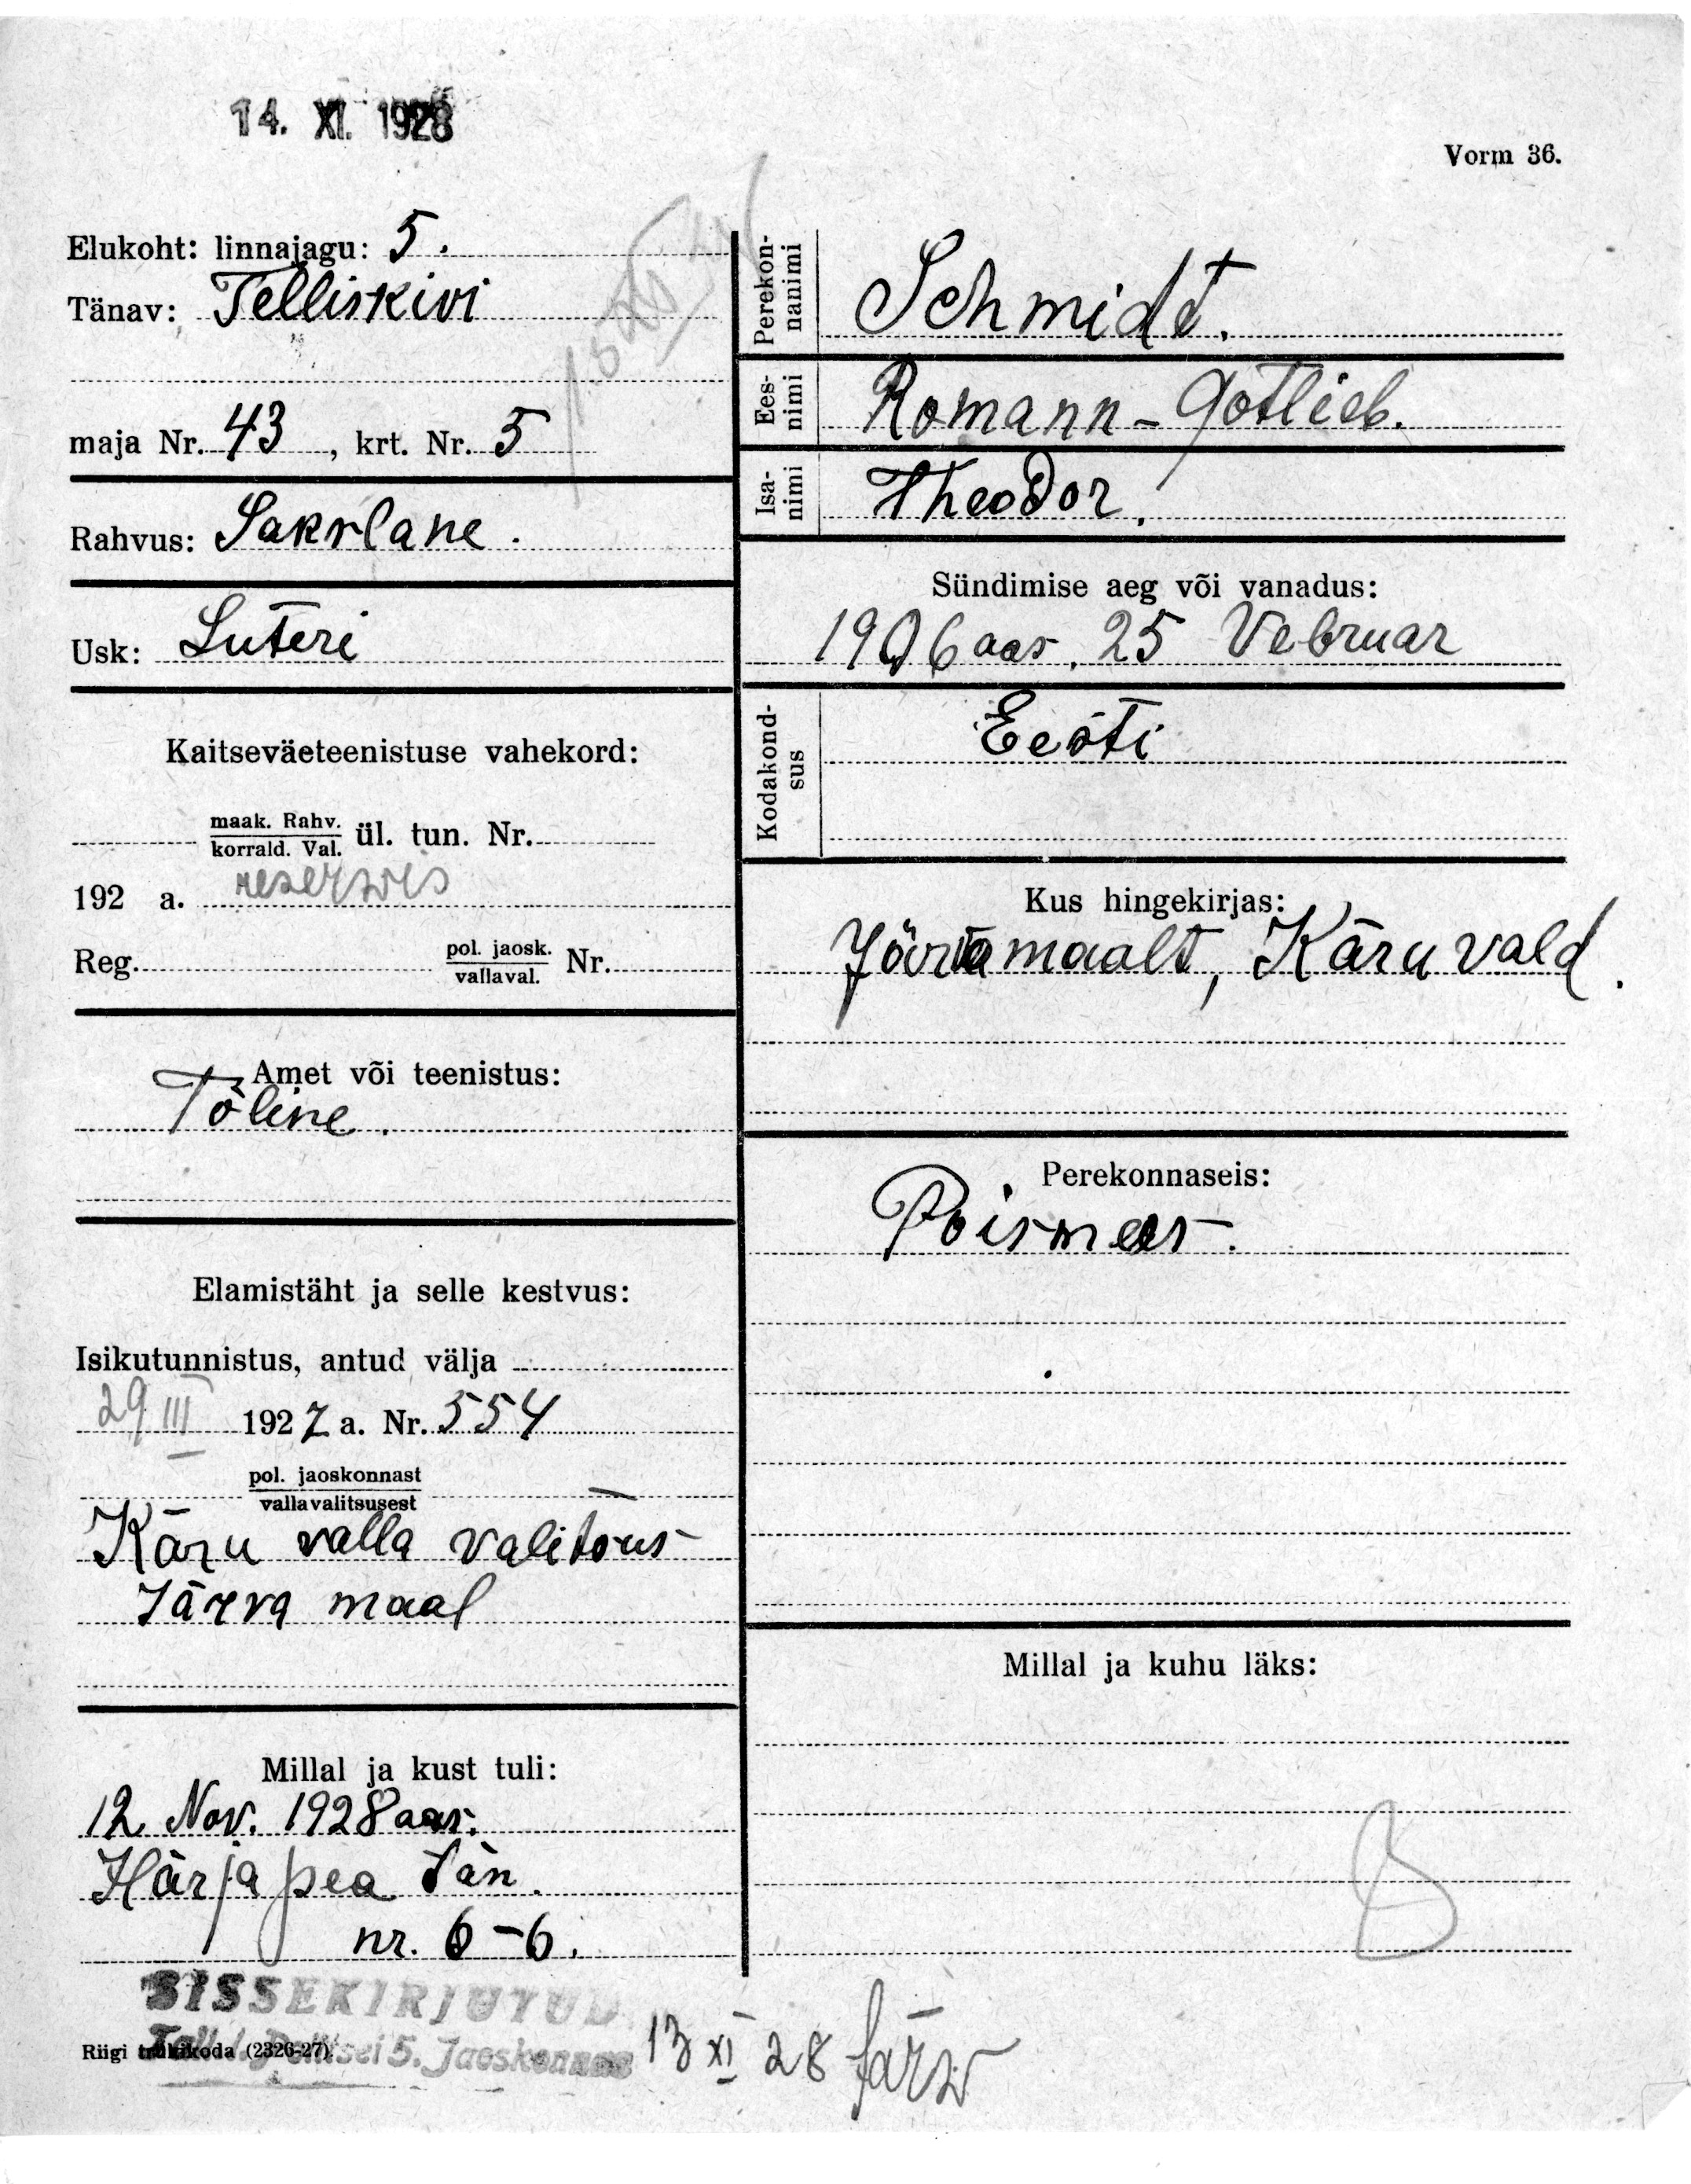 14. XI. 1928
Vorm 36.
Elukoht: linnajagu: 5.
Tänav: Telliskivi
maja Nr. 43, krt. Nr. 5
Rahvus: Sakslane.
Usk: Luteri
Kaitseväeteenistuse vahekord:
maak. Rahv.
korrald. Val. ül. tun. Nr.
192 a. reserwis
Reg. pol. jaosk.
vallaval. Nr.
Amet või teenistus:
Töline.
Elamistäht ja selle kestvus:
Isikutunnistus, antud välja
29 III 1927 a. Nr. 554
pol. jaoskonnast
vallavalitsusest
Käru valla valitsus
Järva maal
Millal ja kust tuli:
12 Nov. 1928 aas.
Härjapea tän.
nr. 6-6.
Perekonnanimi
Schmidt.
Eesnimi
Romann-Gotlieb.
Isanimi
Theodor.
Sündimise aeg või vanadus:
1906 aas. 25 Vebruar
Kodakondsus
Eesti
Kus hingekirjas:
Järvamaalt, Käru vald.
Perekonnaseis:
Poismees.
Millal ja kuhu läks:
SISSEKIRJUTUD
Tall. Politsei 5. Jaoskonnas
Riigi trükikoda (2326-27).
13 XI 28